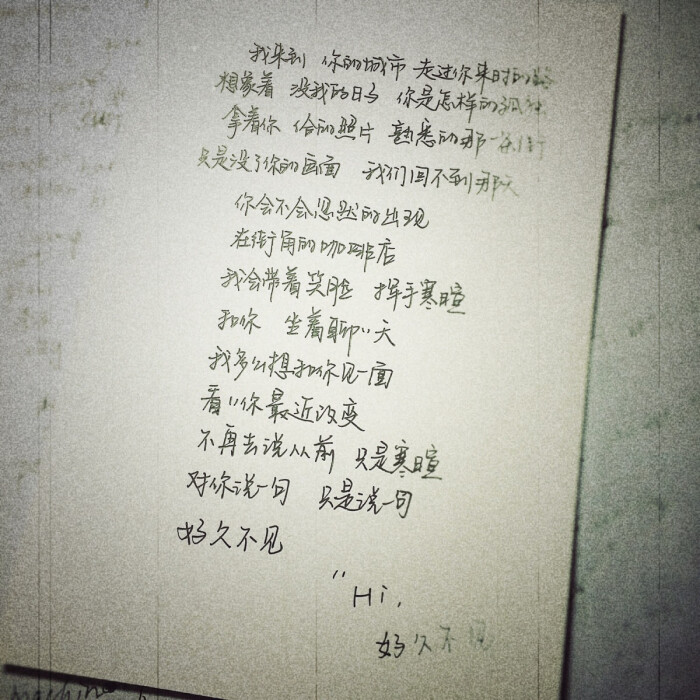 我来到 你的城市 走过你来时的路
想象着 没我的日子 你是怎样的孤独
拿着你 给的照片 熟悉的那一条街
只是没了你的画面 我们回不到那天
你会不会忽然的出现
在街角的咖啡店
我会带着笑脸 挥手寒暄
和你 坐着聊〃天
我多么想和你见一面
看〃你最近改变
不再去说从前 只是寒暄
对你说一句 只是说一句
好久不见
"Hi,
好久不见
machine